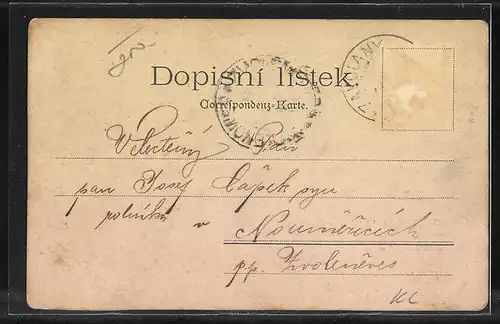 Dopisní lístek
Correspondenz-Karte.
Velectěný Pan
pan Josef Čapek syn
rolníka v
Nouměřicích
pp. Zvoleněves